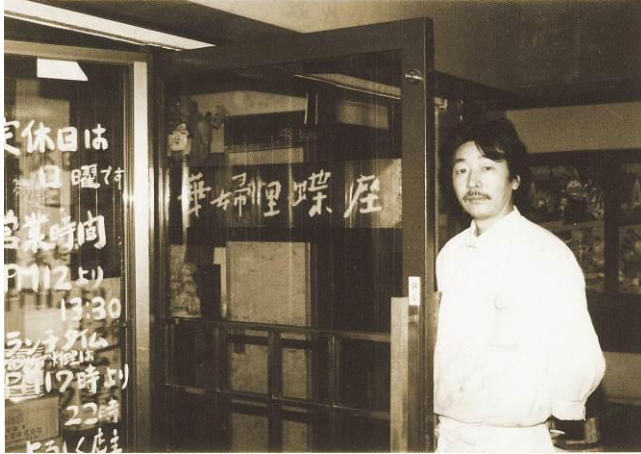 定休日は
日曜です
営業時間
PM12より
13:30
ランチタイム
PM17時より
22時
よろしく店主
華婦里蝶座